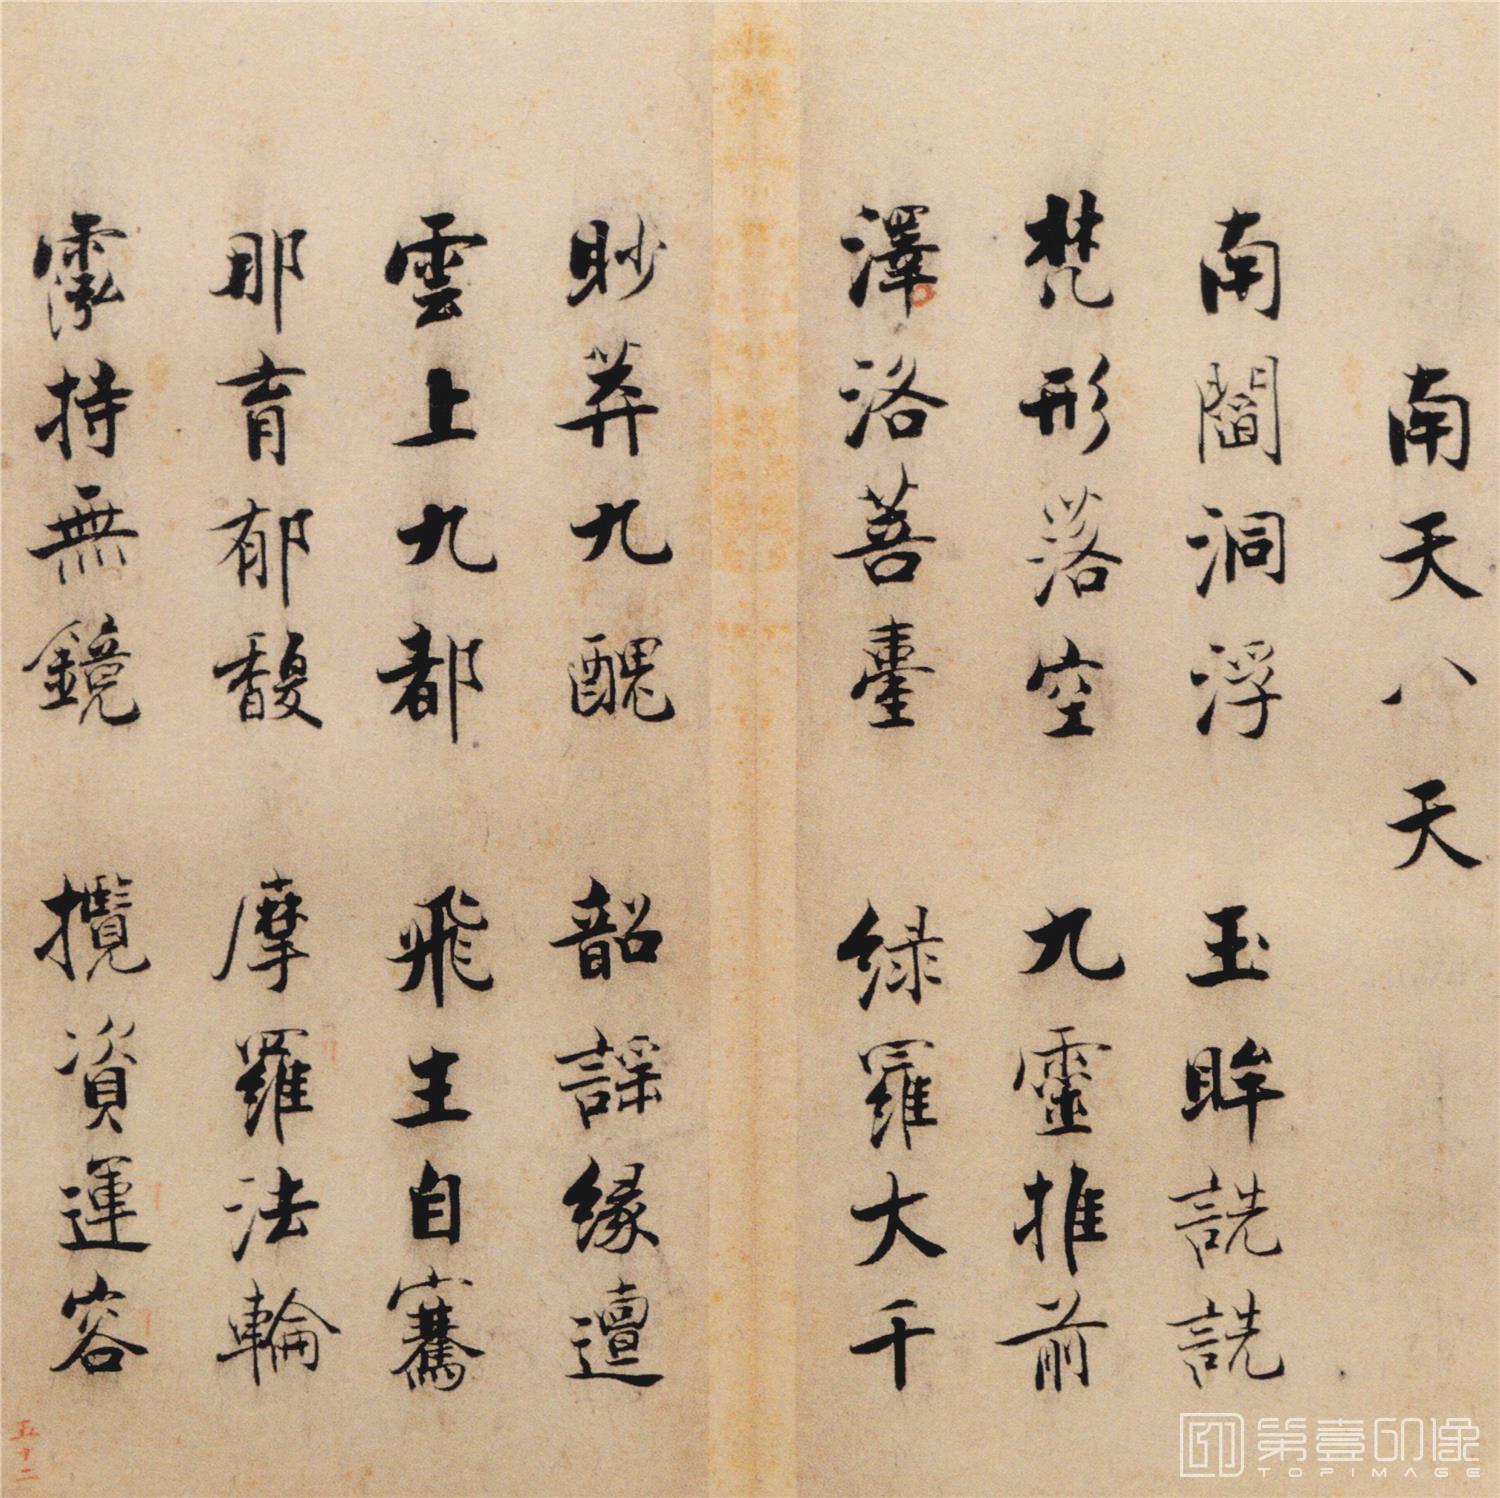 南天八天
南閻洞浮 玉眸詵詵
梵形落空 九靈推前
澤洛菩臺 綠羅大千
眇莽九醜 韶謠緣邅
雲上九都 飛生自騫
那育郁馥 摩羅法輪
霐持無鏡 攬資運容
五十二
第壹印像
TOPIMAGE